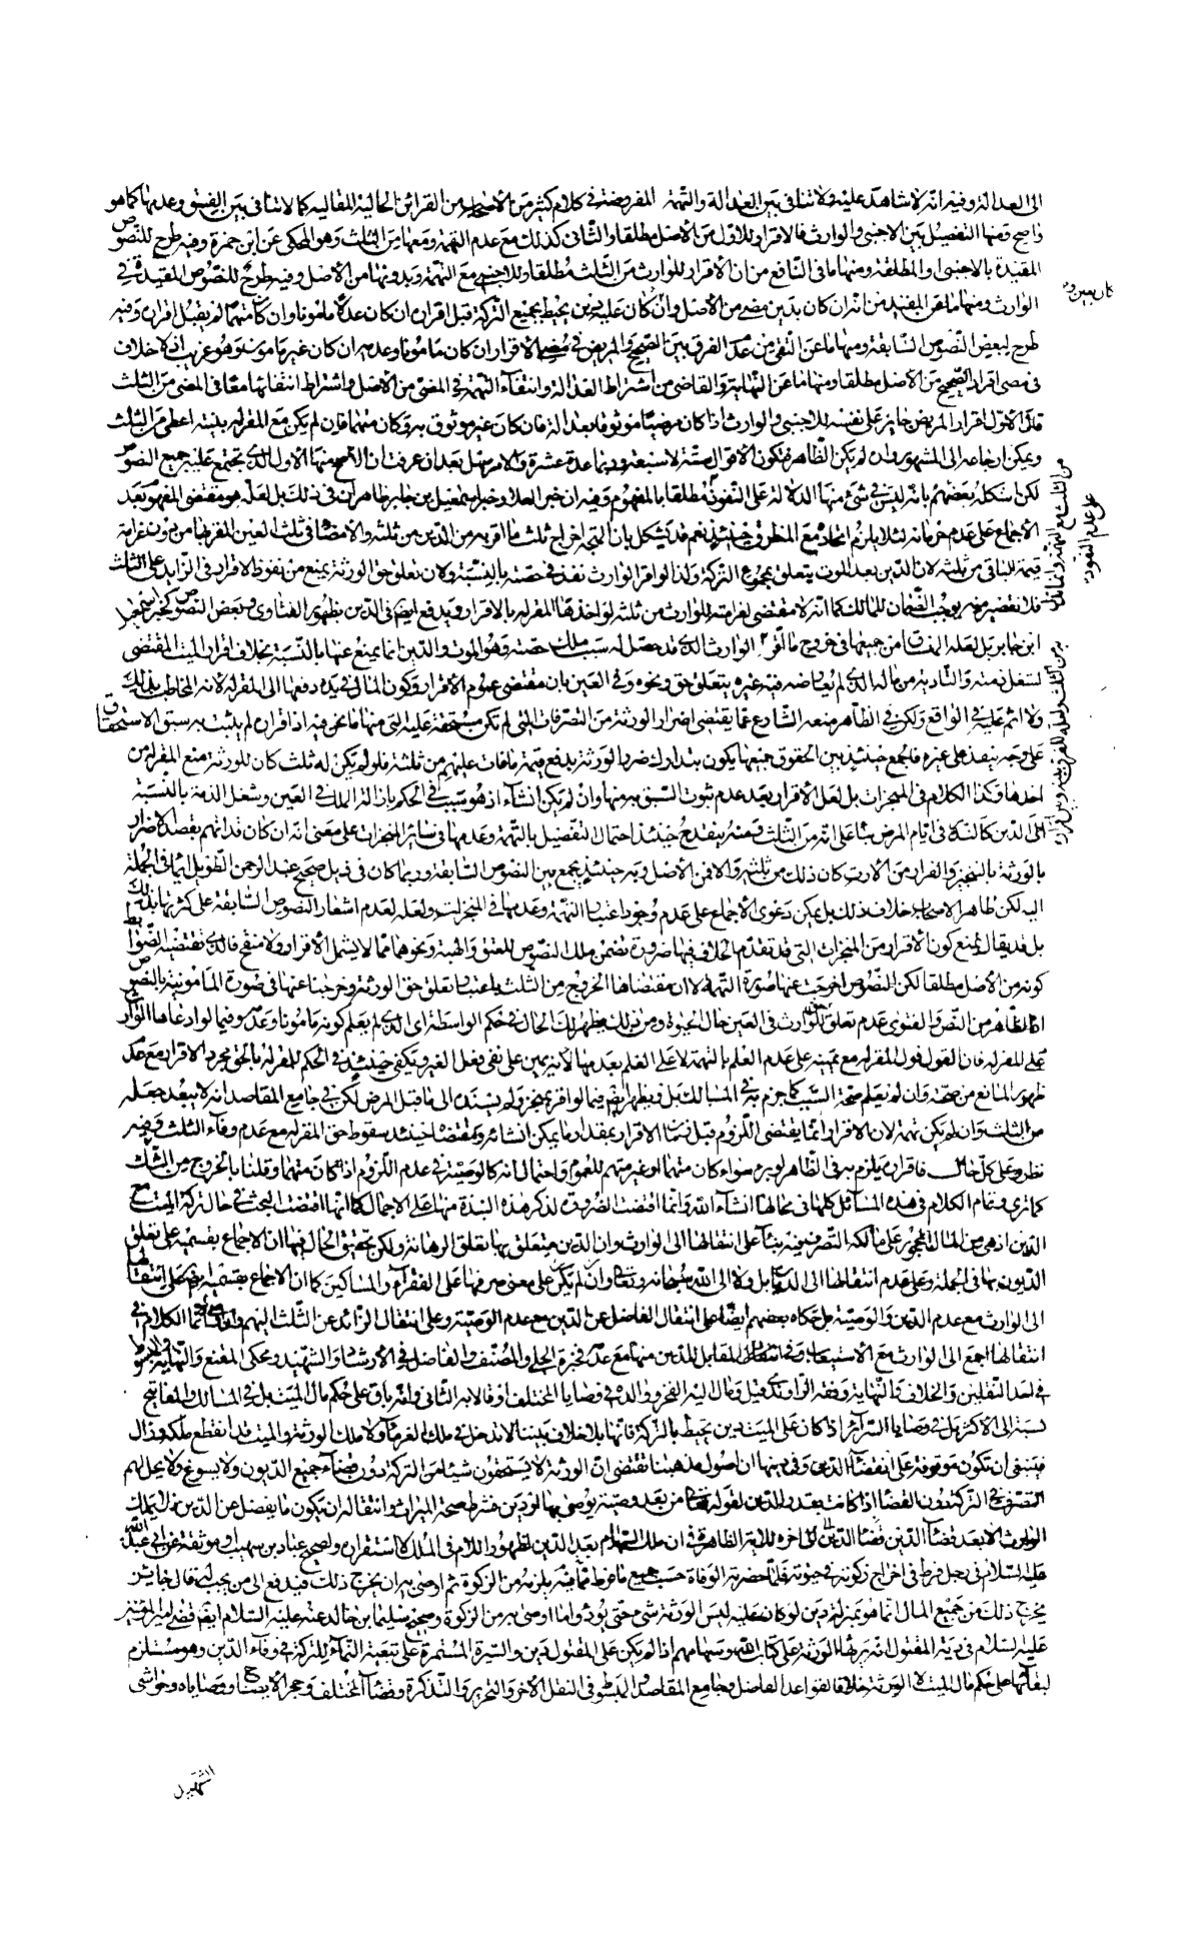 الى العدالة وفيه انه لا شاهد عليه ولا تنافى بين العدالة والتهمة المفروضة فى كلام كثير من الأصحاب من القرائن الحالية والمقالية كما لا تنافى بين الفسق وعدمها كما هو
واضح ومنها التفصيل بين الاجنبى والوارث فالاقرار للاول من الاصل مطلقا والثانى كذلك مع عدم التهمة ومعها من الثلث وهو المحكى عن ابن حمزة وفيه طرح للنصوص
المقيدة بالاجنبى او المطلقة ومنها ما فى النافع من ان الاقرار للوارث من الثلث مطلقا وللاجنبى مع التهمة وبدونها من الاصل وفيه طرح للنصوص المقيدة فى
الوارث ومنها ما عن المفيد من انه ان كان بدين مضى من الاصل وان كان عليه دين يحيط بجميع التركة قبل اقراره ان كان عدلا مأمونا وان كان متهما لم يقبل اقراره وفيه
طرح لبعض النصوص السابقة ومنها ما عن التقى من عدم الفرق بين الصحيح والمريض فى مضى الاقرار ان كان مأمونا وعدمه ان كان غير مأمون وهو غريب اذ لا خلاف
فى مضى اقرار الصحيح من الاصل مطلقا ومنها ما عن النهاية والقاضى من اشتراط العدالة وانتفاء التهمة فى المضى من الاصل واشتراط انتفائها معا فى المضى من الثلث
قال الاول اقرار المريض جايز على نفسه للاجنبى والوارث اذا كان مرضيا موثوقا بعدالته فان كان غير موثوق به وكان متهما فان لم يكن مع المقر له بينة اعطى من الثلث
ويمكن ارجاعه الى المشهور وانه لم يكن الظاهر فتكون الاقوال ستة لا سبعة وربما عدة عشرة والامر سهل بعد ان عرفت ان الاصح منها الاول الذى تجتمع عليه جميع النصوص
لكن استشكله بعضهم بانه ليس فى شىء منها الدلالة على النفوذ مطلقا بالمفهوم وفيه ان خبر العلا وخبر اسمعيل بن جابر ظاهران فى ذلك بل لعله هو مقتضى المفهوم بعد
الاجماع على عدم حرمانه لئلا يلزم اتحاده مع المنطوق حينئذ نعم قد يشكل بان المتجه اخراج ثلث ما اقر به من الدين من ثلثه والامضاء فى ثلث العين المقر بها من دون غرامة
قيمة الباقى من ثلثه لان الدين بعد الموت يتعلق بمجموع التركة ولذا لو اقر الوارث نفذ فى حصته بالنسبة ولان تعلق حق الورثة يمنع من نفوذ الاقرار فى الزايد على الثلث
ابن جابر بل لعله الفرق من جبهما فى خروج ما اقر الوارث الذى قد حصل له سبب ملك حصته وهو الموت والدين انما يمنع عنها بالنسبة بخلاف اقرار الميت المقتضى
لشغل ذمته والتأدية من ماله الذى لم يعارضه فيه غيره بتعلق حق ونحوه وفى العين بان مقتضى عموم الاقرار وكون المال فى يده دفعها الى المقر له لانه المخاطب بذلك
ولا اثم عليه فى الواقع ولكن فى الظاهر منعه الشارع عما يقتضى اضرار الورثة من التصرفات التى لم تكن مستحقة عليه التى منها ما نحن فيه اذا قراره لم يثبت به سبق الاستحقاق
على وجه ينفذ على غيره فالجمع حينئذ بين الحقوق جميعها يكون بتدارك ضرر الورثة بدفع قيمة ما فات عليهم من ثلثه فلو لم يكن له ثلث كان للورثة منع المقر له من
اخذها وكذا الكلام فى المنجزات بل لعل الاقرار بعد عدم ثبوت السبق به منها وان لم يكن انشاء اذ هو سبب فى الحكم بازالة الملك فى العين وشغل الذمة بالنسبة
الى الدين كالنذر فى ايام المرض بناء على انه من الثلث ومنه ينقدح حينئذ احتمال التفصيل بالتهمة وعدمها فى سائر المنجزات على معنى انه ان كان قد اتهم بقصد الاضرار
بالورثة بالتنجيز والفرار من الارث كان ذلك من ثلثه والا فمن الاصل وبه حينئذ يجمع بين النصوص السابقة وربما كان فى ذيل صحيح عبد الرحمن الطويل ايماء فى الجملة
اليه لكن ظاهر الاصحاب خلاف ذلك بل يمكن دعوى الاجماع على عدم وجود اعتبار التهمة وعدمها فى المنجزات ولعله لعدم اشعار النصوص السابقة على كثرتها بذلك
بل قد يقال بمنع كون الاقرار من المنجزات التى قد تقدم الخلاف فيها ضرورة تضمن تلك النصوص للعتق والهبة ونحوهما مما لا يشمل الاقرار ولا منقح فالذى تقتضيه الضوابط
كونه من الاصل مطلقا لكن النصوص اخرجت عنها صورة التهمة لا ان مقتضاها الخروج من الثلث باعتبار تعلق حق الورثة وخرجنا عنها فى صورة المأمونية بالنصوص
اذ الظاهر من النص والفتوى عدم تعلق حق الوارث فى العين حال الحيوة ومن ذلك يظهر لك الحال فى حكم الواسطة اى الذى لم يعلم كونه مأمونا وعدمه وفيما لو ادعاها الوارث
على المقر له فان القول قول المقر له مع يمينه على عدم العلم بالتهمة لا على العلم بعدمها لانه يمين على نفى فعل الغير ويكفى حينئذ فى الحكم للمقر له بالحق مجرد الاقرار مع عدم
ظهور المانع من صحته وان لم يعلم صحة السبب كما جزم به فى المسالك بل ويظهر ايضا فيما لو اقر بمنجز ولم يسنده الى ما قبل المرض لكن فى جامع المقاصد انه لا يبعد جعله
من الثلث وان لم يكن تهمة لان الاقرار انما يقتضى اللزوم قبل زمان الاقرار بمقدار ما يمكن انشائه ومقتضاه حينئذ سقوط حق المقر له مع عدم وفاء الثلث وفيه
نظر وعلى كل حال فاقراره يلزم به فى الظاهر لو برء سواء كان متهما او غير متهم للعموم واحتمال انه كالوصية فى عدم اللزوم اذا كان متهما وقلنا بالخروج من الثلث
كما ترى وتمام الكلام فى هذه المسائل كلها فى محالها انشاء الله وانما اقتضت الضرورة لذكر هذه النبذة منها على الاجمال كما انها اقتضت البحث فى حال تركة الميت مع
الدين اذ هى من المال المحجور على مالكه التصرف فيه بناء على انتقالها الى الوارث وان الدين متعلق بها تعلق الرهانة ولكن تحقيق الحال فيها ان الاجماع بقسميه على تعلق
الديون بها فى الجملة وعلى عدم انتقالها الى الديان بل ولا الى الله سبحانه وتعالى وان لم يكن على معنى صرفها على الفقراء والمساكين كما ان الاجماع بقسميه على انتقالها
الى الوارث مع عدم الدين والوصية بل حكاه بعضهم ايضا على انتقال الفاضل عن الدين مع عدم الوصية وعلى انتقال الزائد عن الثلث اليهم وانما الكلام فى
انتقالها اجمع الى الوارث مع الاستيعاب وفى انتقال المقابل للدين منها مع عدمه فخيرة الحلى والمصنف والفاضل فى الارشاد والشهيد ومحكى المقنع والنهاية
فى احد النقلين والخلاف والنهاية وفقه الراوندى قيل ومال اليه الفخر ووالده فى قضايا المختلف او قالا به الثانى وانه باق على حكم مال الميت بل فى المسالك والمفاتيح
نسبته الى الاكثر بل فى وصايا السرائر اذا كان على الميت دين يحيط بالتركة فانها بلا خلاف بيننا لا تدخل فى ملك الغرماء ولا ملك الورثة والميت قد انقطع ملكه وزال
فينبغى ان تكون موقوفة على انقضاء الدين وفى دينها ان اصول مذهبنا تقتضى ان الورثة لا يستحقون شيئا من التركة دون قضاء جميع الديون ولا يسوغ ولا يحل لهم
التصرف فى التركة دون القضاء اذا كانت بقدر الدين لقوله تعالى من بعد وصية يوصى بها او دين فشرط صحة الميراث وانتقاله ان يكون ما يفضل عن الدين
عليه السلام فى رجل فرط فى اخراج زكوته فى حيوته فلما حضرته الوفاة حسب جميع ما فرط فيه مما يلزمه من الزكوة ثم اوصى به ان يخرج ذلك فيدفع الى من يجب له قال جايز
يخرج ذلك من جميع المال انما هو بمنزلة دين لو كان عليه ليس لورثته شىء حتى يؤدوا ما اوصى به من الزكوة وصحيح سليمان بن خالد عنه عليه السلام ايضا قضى امير المؤمنين
عليه السلام فى دية المقتول انه يرثها الورثة على كتاب الله وسهامهم اذا لم يكن على المقتول دين والسيرة المستمرة على تبعية النماء للتركة فى وفاء الدين وهو مستلزم
لبقائها على حكم مال الميت لا الورثة خلافا لقواعد الفاضل وجامع المقاصد والمبسوط فى النقل الآخر والتحرير والتذكرة وقضاء المختلف وحجر الايضاح وقضاياه وحواشى